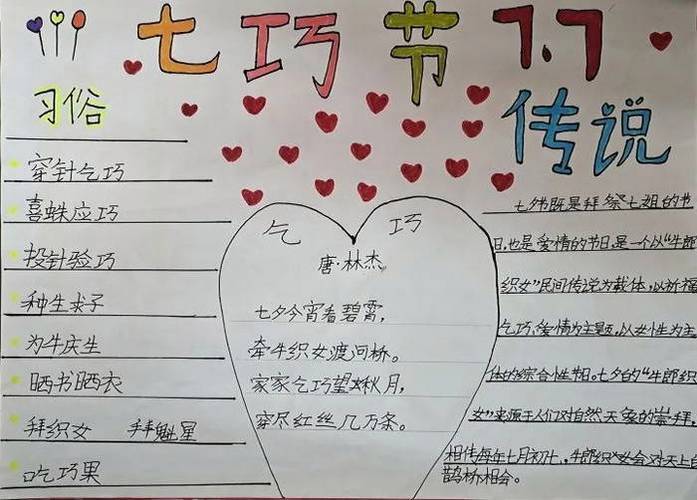 七巧节 7.7
习俗
穿针乞巧
喜蛛应巧
投针验巧
种生求子
为牛庆生
晒书晒衣
拜织女 拜魁星
吃巧果
乞巧
唐·林杰
七夕今宵看碧霄，
牵牛织女渡河桥。
家家乞巧望秋月，
穿尽红丝几万条。
传说
七夕节既是拜祭七姐的节
日，也是爱情的节日，是一个以"牛郎
织女"民间传说为载体，以祈福
乞巧、爱情为主题，以女性为主
体的综合性节日。七夕的"牛郎织
女"来源于人们对自然天象的崇拜，
相传每年七月初七，牛郎织女会于天上的
鹊桥相会。